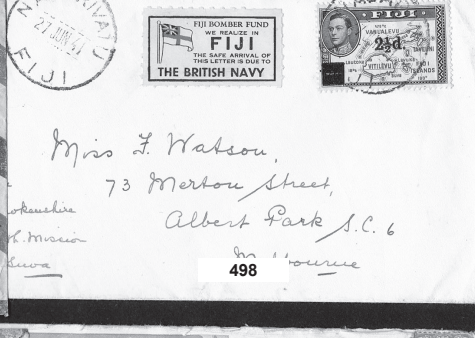 27 JUN 41
FIJI
FIJI BOMBER FUND
WE REALIZE IN
FIJI
THE SAFE ARRIVAL OF
THIS LETTER IS DUE TO
THE BRITISH NAVY
FIJI
2½d.
VANUA LEVU
VITI LEVU
FIJI
ISLANDS
Miss F. Watson,
73 Merton Street,
Albert Park S.C. 6
Melbourne
okenshire
Mission
Suva
498